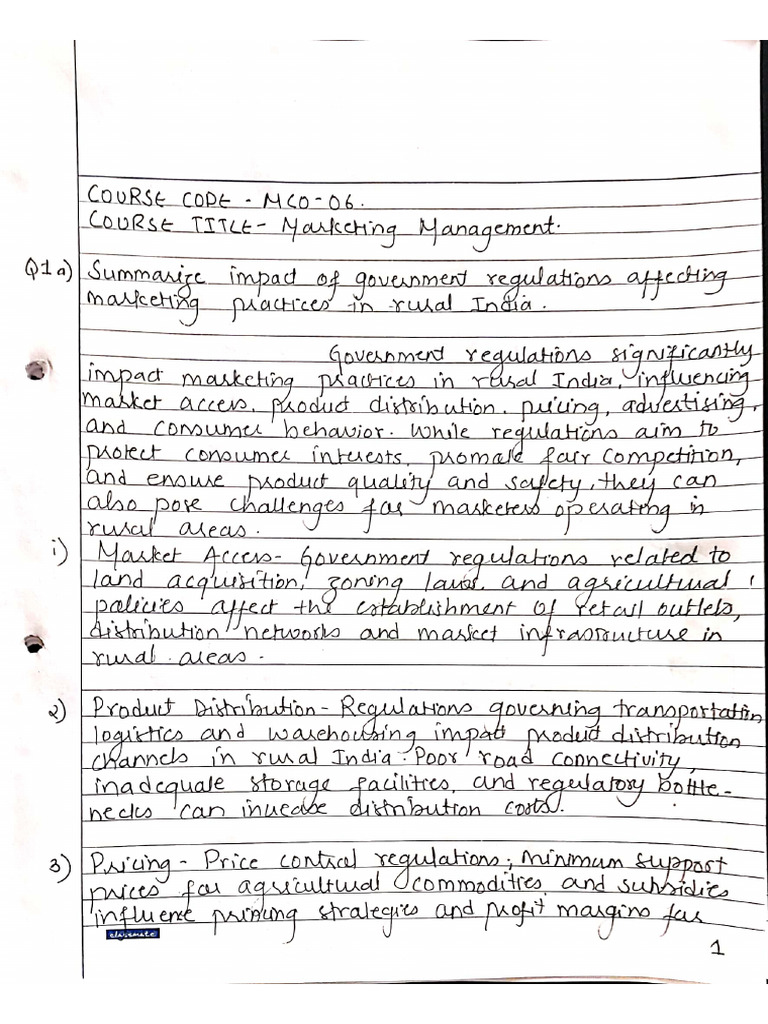 COURSE CODE - MCO-06.
COURSE TITLE - Marketing Management.
Q1 a) Summarize impact of government regulations affecting
marketing practices in rural India.
Government regulations significantly
impact marketing practices in rural India, influencing
market access, product distribution, pricing, advertising,
and consumer behavior. While regulations aim to
protect consumer interests, promote fair competition,
and ensure product quality and safety, they can
also pose challenges for marketers operating in
rural areas.
i) Market Access- Government regulations related to
land acquisition, zoning laws, and agricultural
policies affect the establishment of retail outlets,
distribution networks and market infrastructure in
rural areas.
2) Product Distribution - Regulations governing transportation
logistics and warehousing impact product distribution
channels in rural India. Poor road connectivity,
inadequate storage facilities, and regulatory bottle-
necks can increase distribution costs.
3) Pricing - Price control regulations, minimum support
prices for agricultural commodities, and subsidies
influence pricing strategies and profit margins for
classmate
1